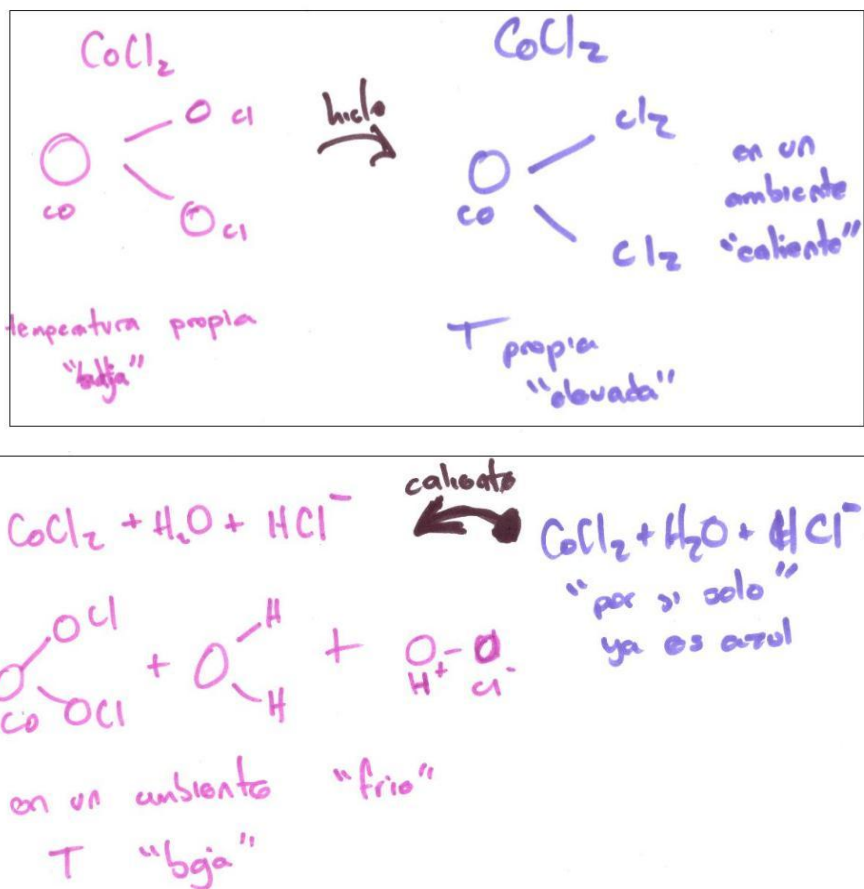 CoCl₂
O Cl
Co
O Cl
temperatura propia
hielo
CoCl₂
Cl₂
Co
Cl₂
en un
ambiente
"caliente"
T propia
"elevada"
CoCl₂ + H₂O + HCl⁻
caliente
CoCl₂ + H₂O + HCl⁻
"por si solo"
ya es azul
O Cl
Co O Cl
+ O H
H
+ O - O
H⁺ Cl⁻
en un ambiente "frio"
T "baja"